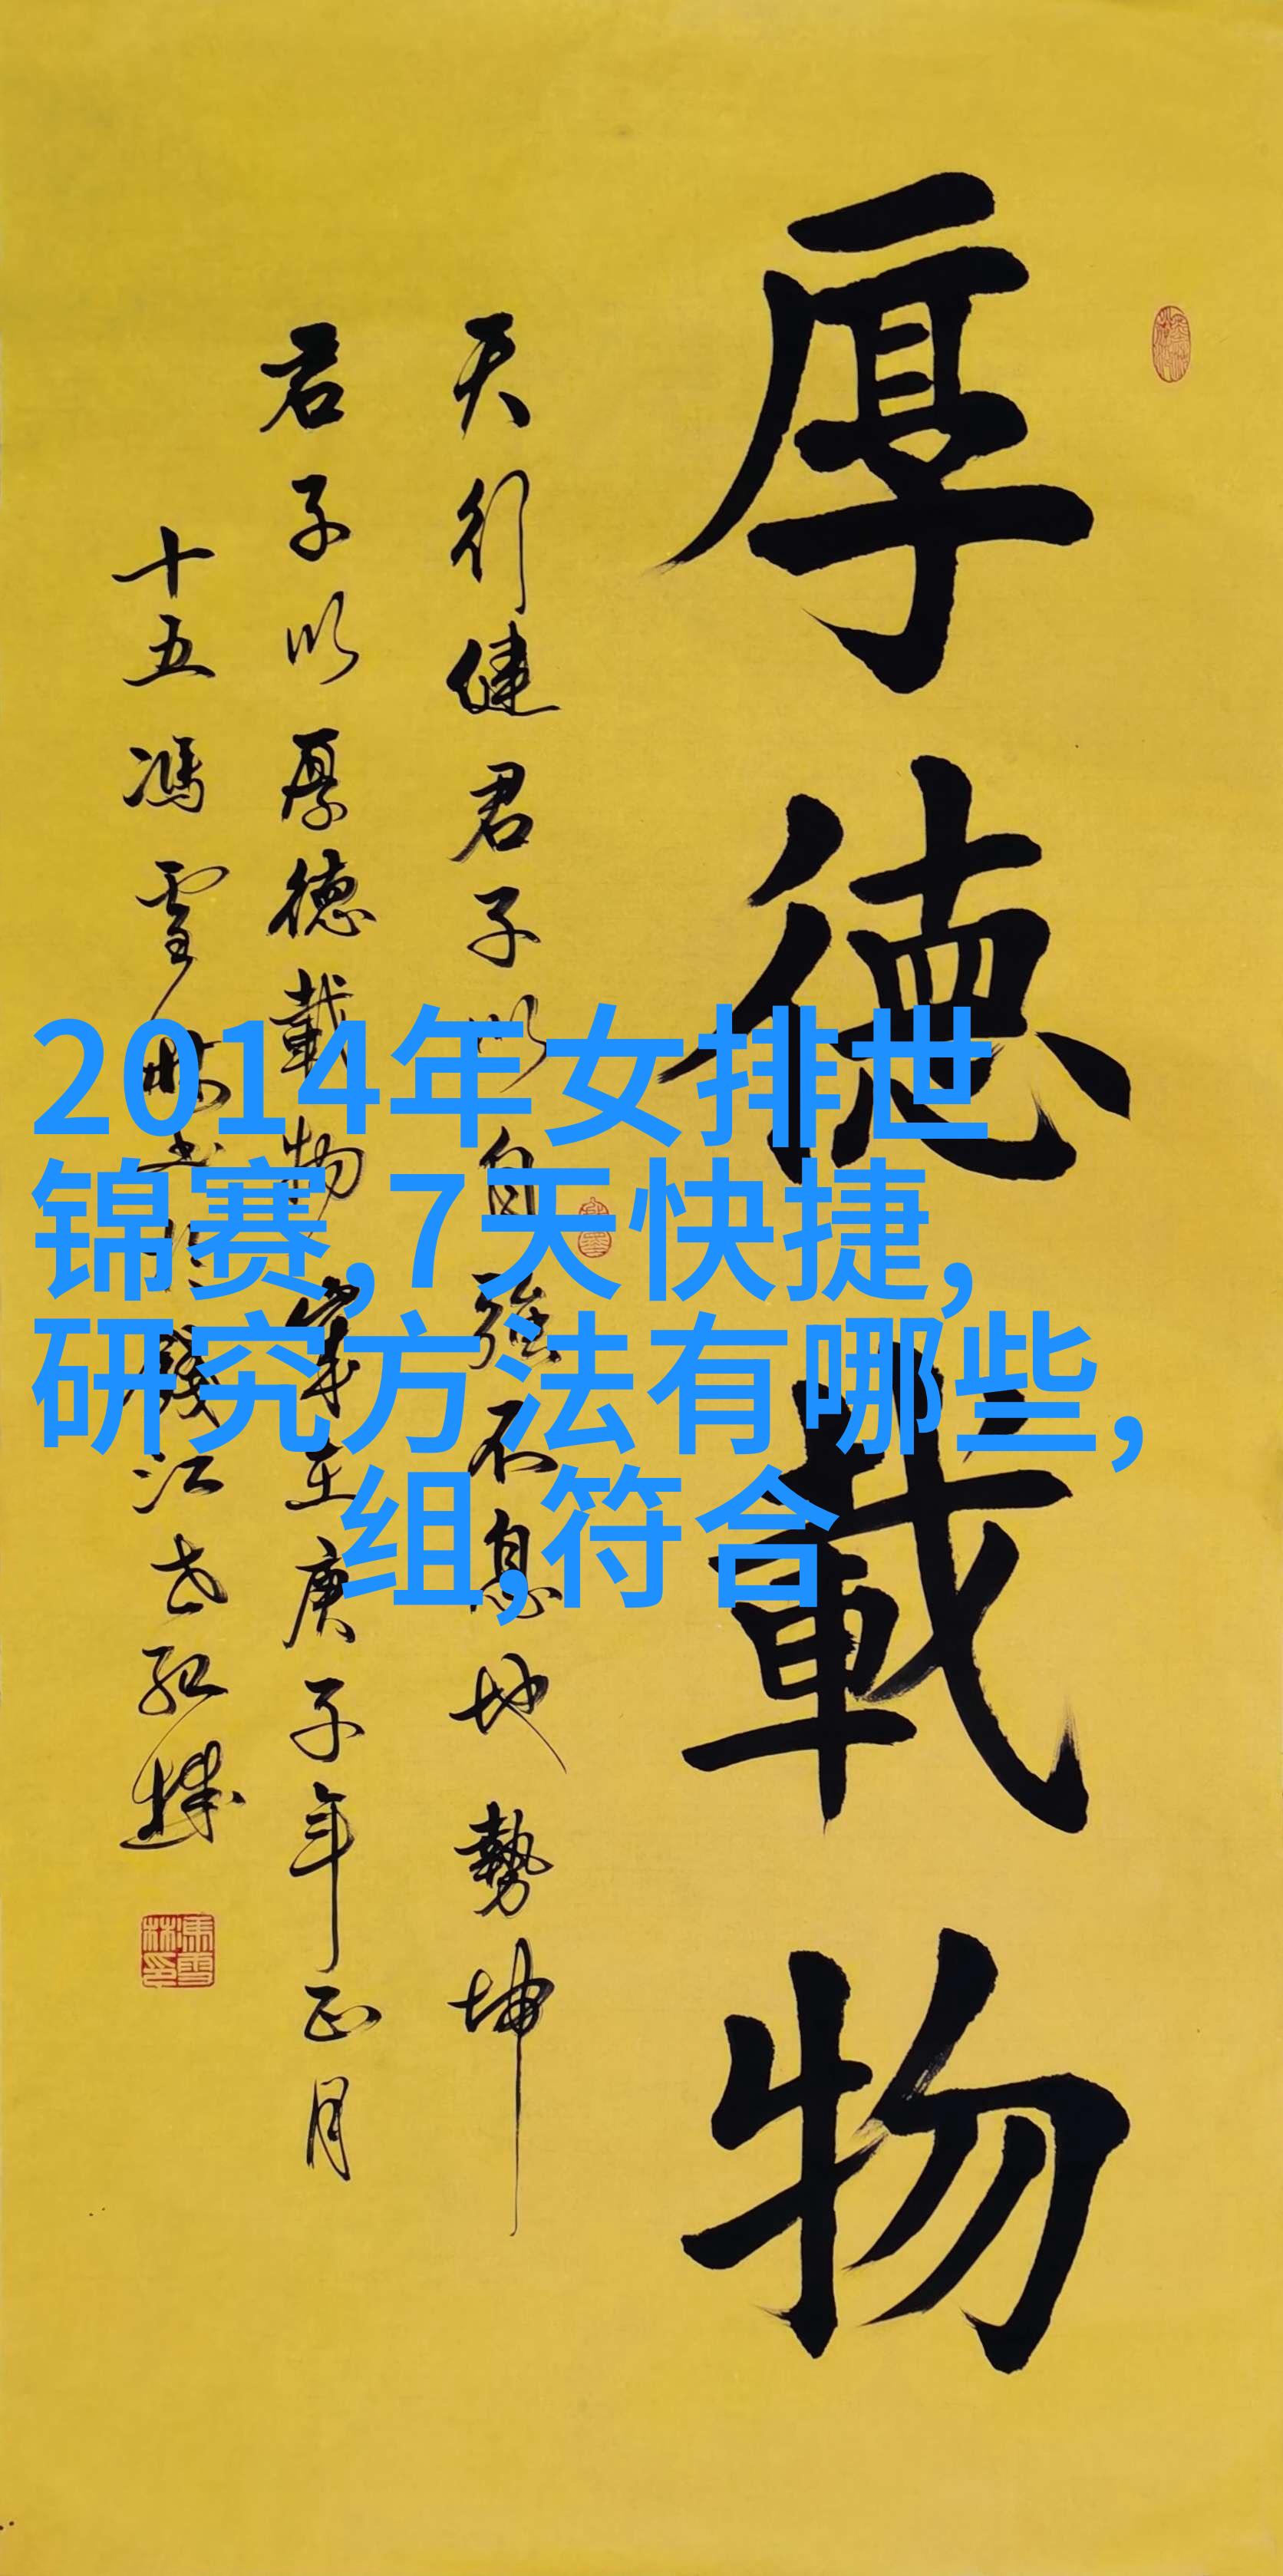 厚德載物
天行健君子以自强不息地勢坤
君子以厚德載物 歲在庚子年正月
十五馮雪林书於錢江
2014年女排世
锦赛,7天快捷,
研究方法有哪些,
组,符合
馮雪林印